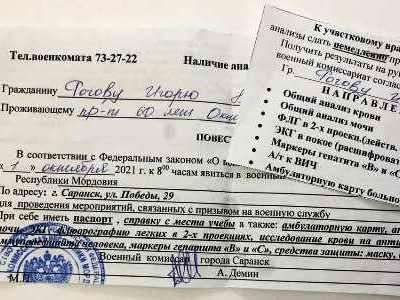 Тел.военкомата 73-27-22
Наличие
Гражданину Рогову Игорю
Проживающему пр-т 60 лет Окт
ПОВЕС
В соответствии с Федеральным законом «О
« 1 » октября 2021 г. к 8⁰⁰ часам явиться в военный
Республики Мордовия
По адресу: г. Саранск, ул. Победы, 29
для проведения мероприятий, связанных с призывом на военную службу
При себе иметь паспорт, справку с места учебы а также: амбулаторную карту,
ЭКГ, флюорографию легких в 2-х проекциях, исследование крови на
иммунодефицита человека, маркеры гепатита «В» и «С», средства защиты: маску,
Военный комиссар города Саранск
М.П.
А. Демин
К участковому вра
анализы сдать немедленно
Получить результаты на рук
военный комиссариат соглас
Гр. Рогову
НАПРАВЛЕ
• Общий анализ крови
• Общий анализ мочи
• ФЛГ в 2-х проекц.(действ.
• ЭКГ в покое (расшифроват
• Маркеры гепатита «В» и «С
• А/т к ВИЧ
• Амбулаторную карту больно